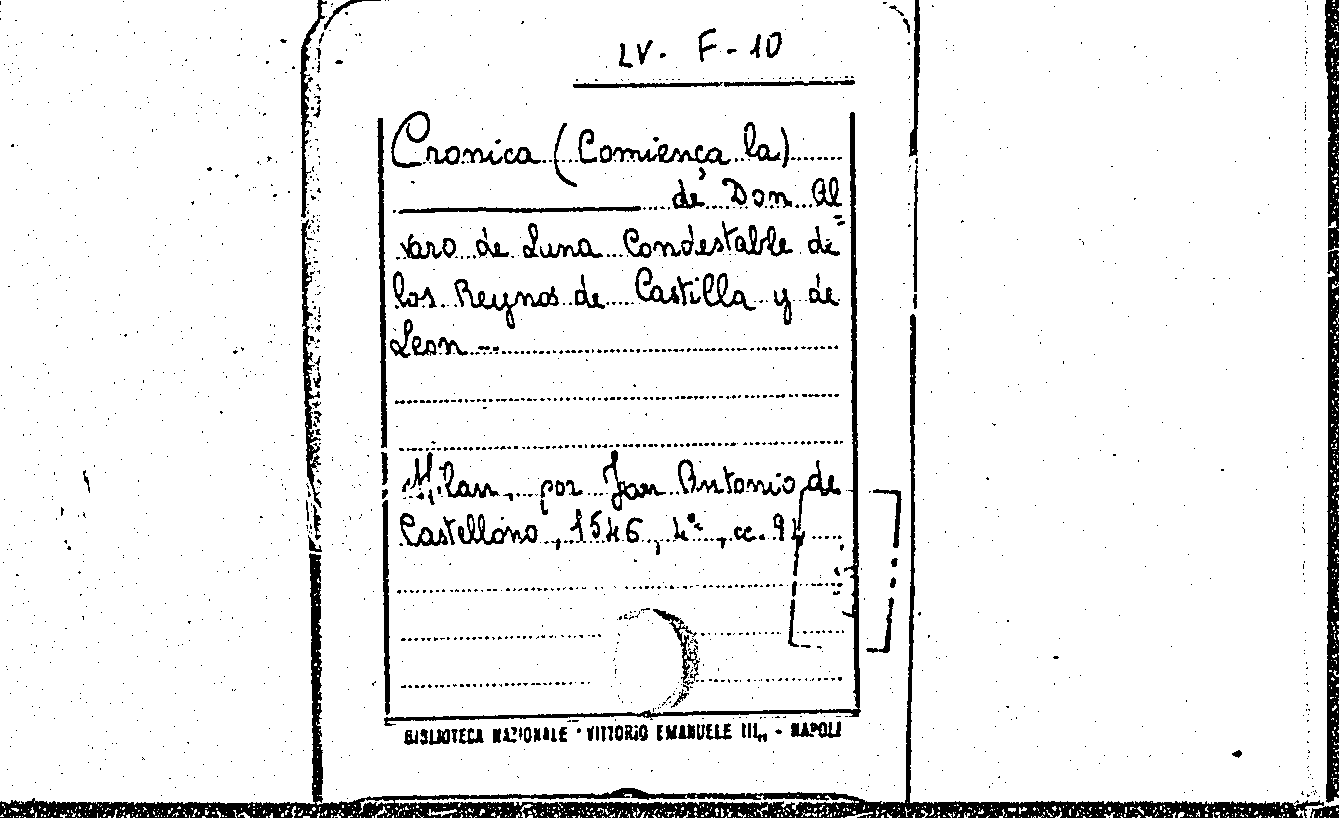 LV. F-10
Cronica (Comiença la)
de Don Al=
varo de Luna Condestable de
los Reynos de Castilla y de
Leon --
Milan, por Joan Antonio de
Castellono, 1546, 4°, cc. 94
BIBLIOTECA NAZIONALE "VITTORIO EMANUELE III" - NAPOLI